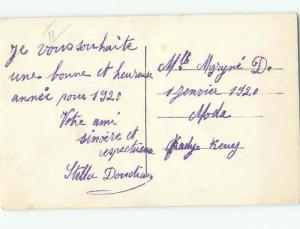 Je vous souhaite
une bonne et heureuse
année pour 1920
Votre ami
sincère et
respectueux
Stella
Mlle Myryné D.
1 Janvier 1920
Moda